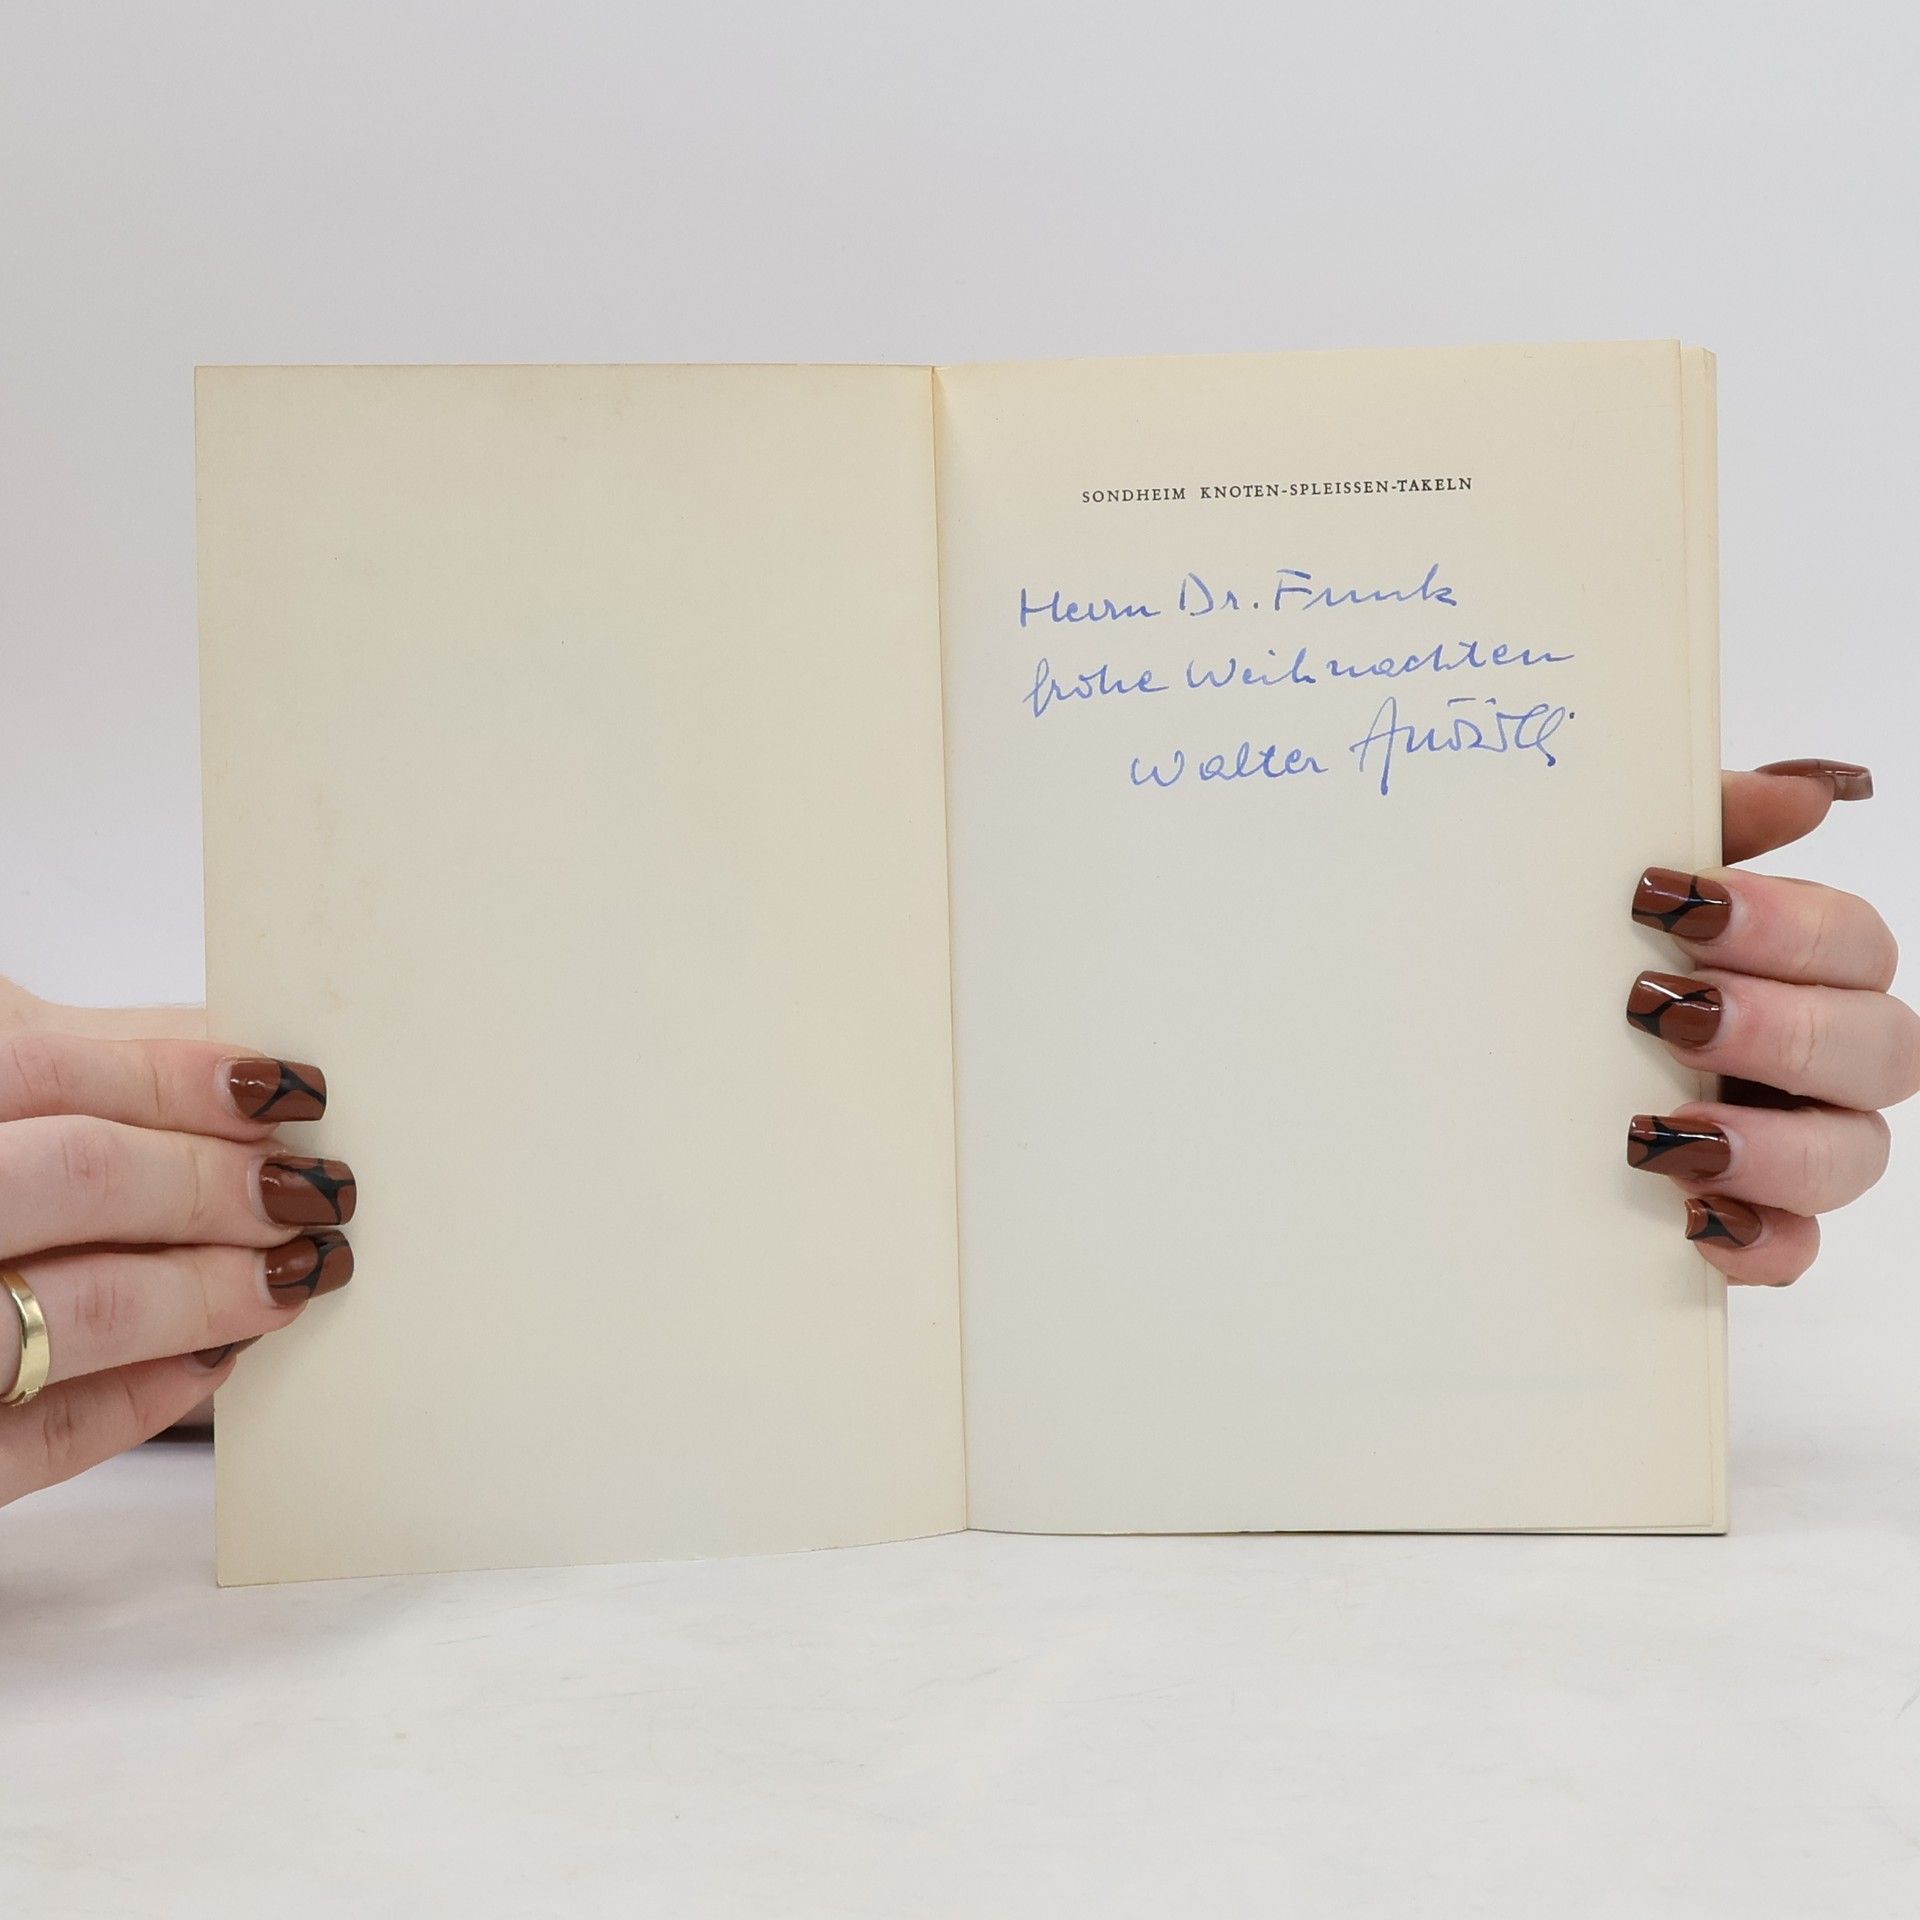 SONDHEIM KNOTEN-SPLEISSEN-TAKELN
Herrn Dr. Funk
frohe Weihnachten
Walter